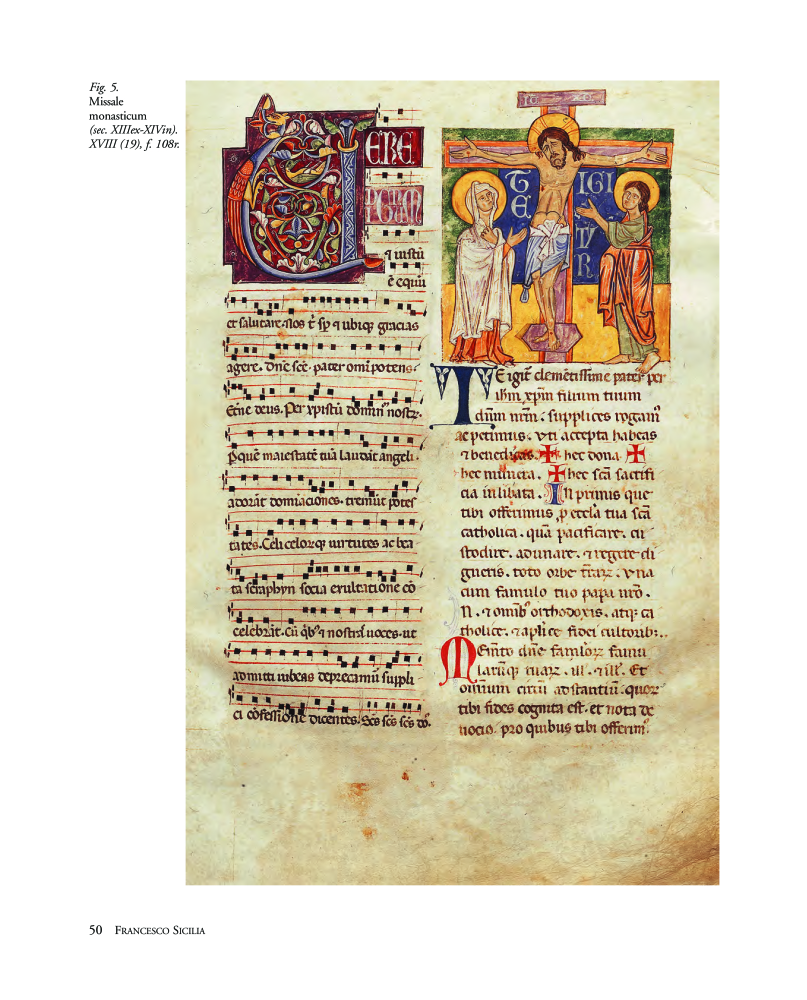 Fig. 5.
Missale
monasticum
(sec. XIIIex-XIVin).
XVIII (19), f. 108r.
ERE
⁊ iustū
ē equū
et salutare. Nos t̄ sp̄ ⁊ ubiqꝫ gracias
agere. Dn̄e sc̄e. pater omīpotens.
Et̄ne deus. Per xpistū domin̄ nostꝝ.
Ꝑ quē maiestatē tuā laudāt angeli.
adorāt domiaciones. tremūt potes
tates. Celi celorqꝫ uirtutes ac bea
ta seraphyn socia exultatione cō
celebrāt. Cū qbꝰ ⁊ nostras uoces. ut
admitti iubeas deprecamur suppli
ci cōfessione dicentes. Sc̄s sc̄s sc̄s
TE
IGI
TVR
TE igit̄ clemētissime pater per
ihm̄ xp̄m filium tuum
dn̄m nr̄m. supplices rogamꝰ
ac petimus. uti accepta habeas
⁊ benedicas. ✠ hec dona ✠
hec munera. ✠ hec sc̄a sacrifi
cia inlibata. In primis que
tibi offerimus ꝓ eccl̄a tua sc̄a
catholica. quā pacificare. cu
stodire. adunare. ⁊ regere di
gneris. toto orbe tr̄arꝝ. vna
cum famulo tuo papa nr̄o.
N. ⁊ omībꝰ orthodoxis. atqꝫ ca
tholice. ⁊ aplice fidei cultoribꝫ.
MEm̄to dn̄e famloꝝ famu
larūqꝫ tuaꝝ. ill. ⁊ ill. Et
omnium circū adstantiū. quoꝝ
tibi fides cognita est. et nota de
uocio. pro quibus tibi offerimꝰ
50 FRANCESCO SICILIA